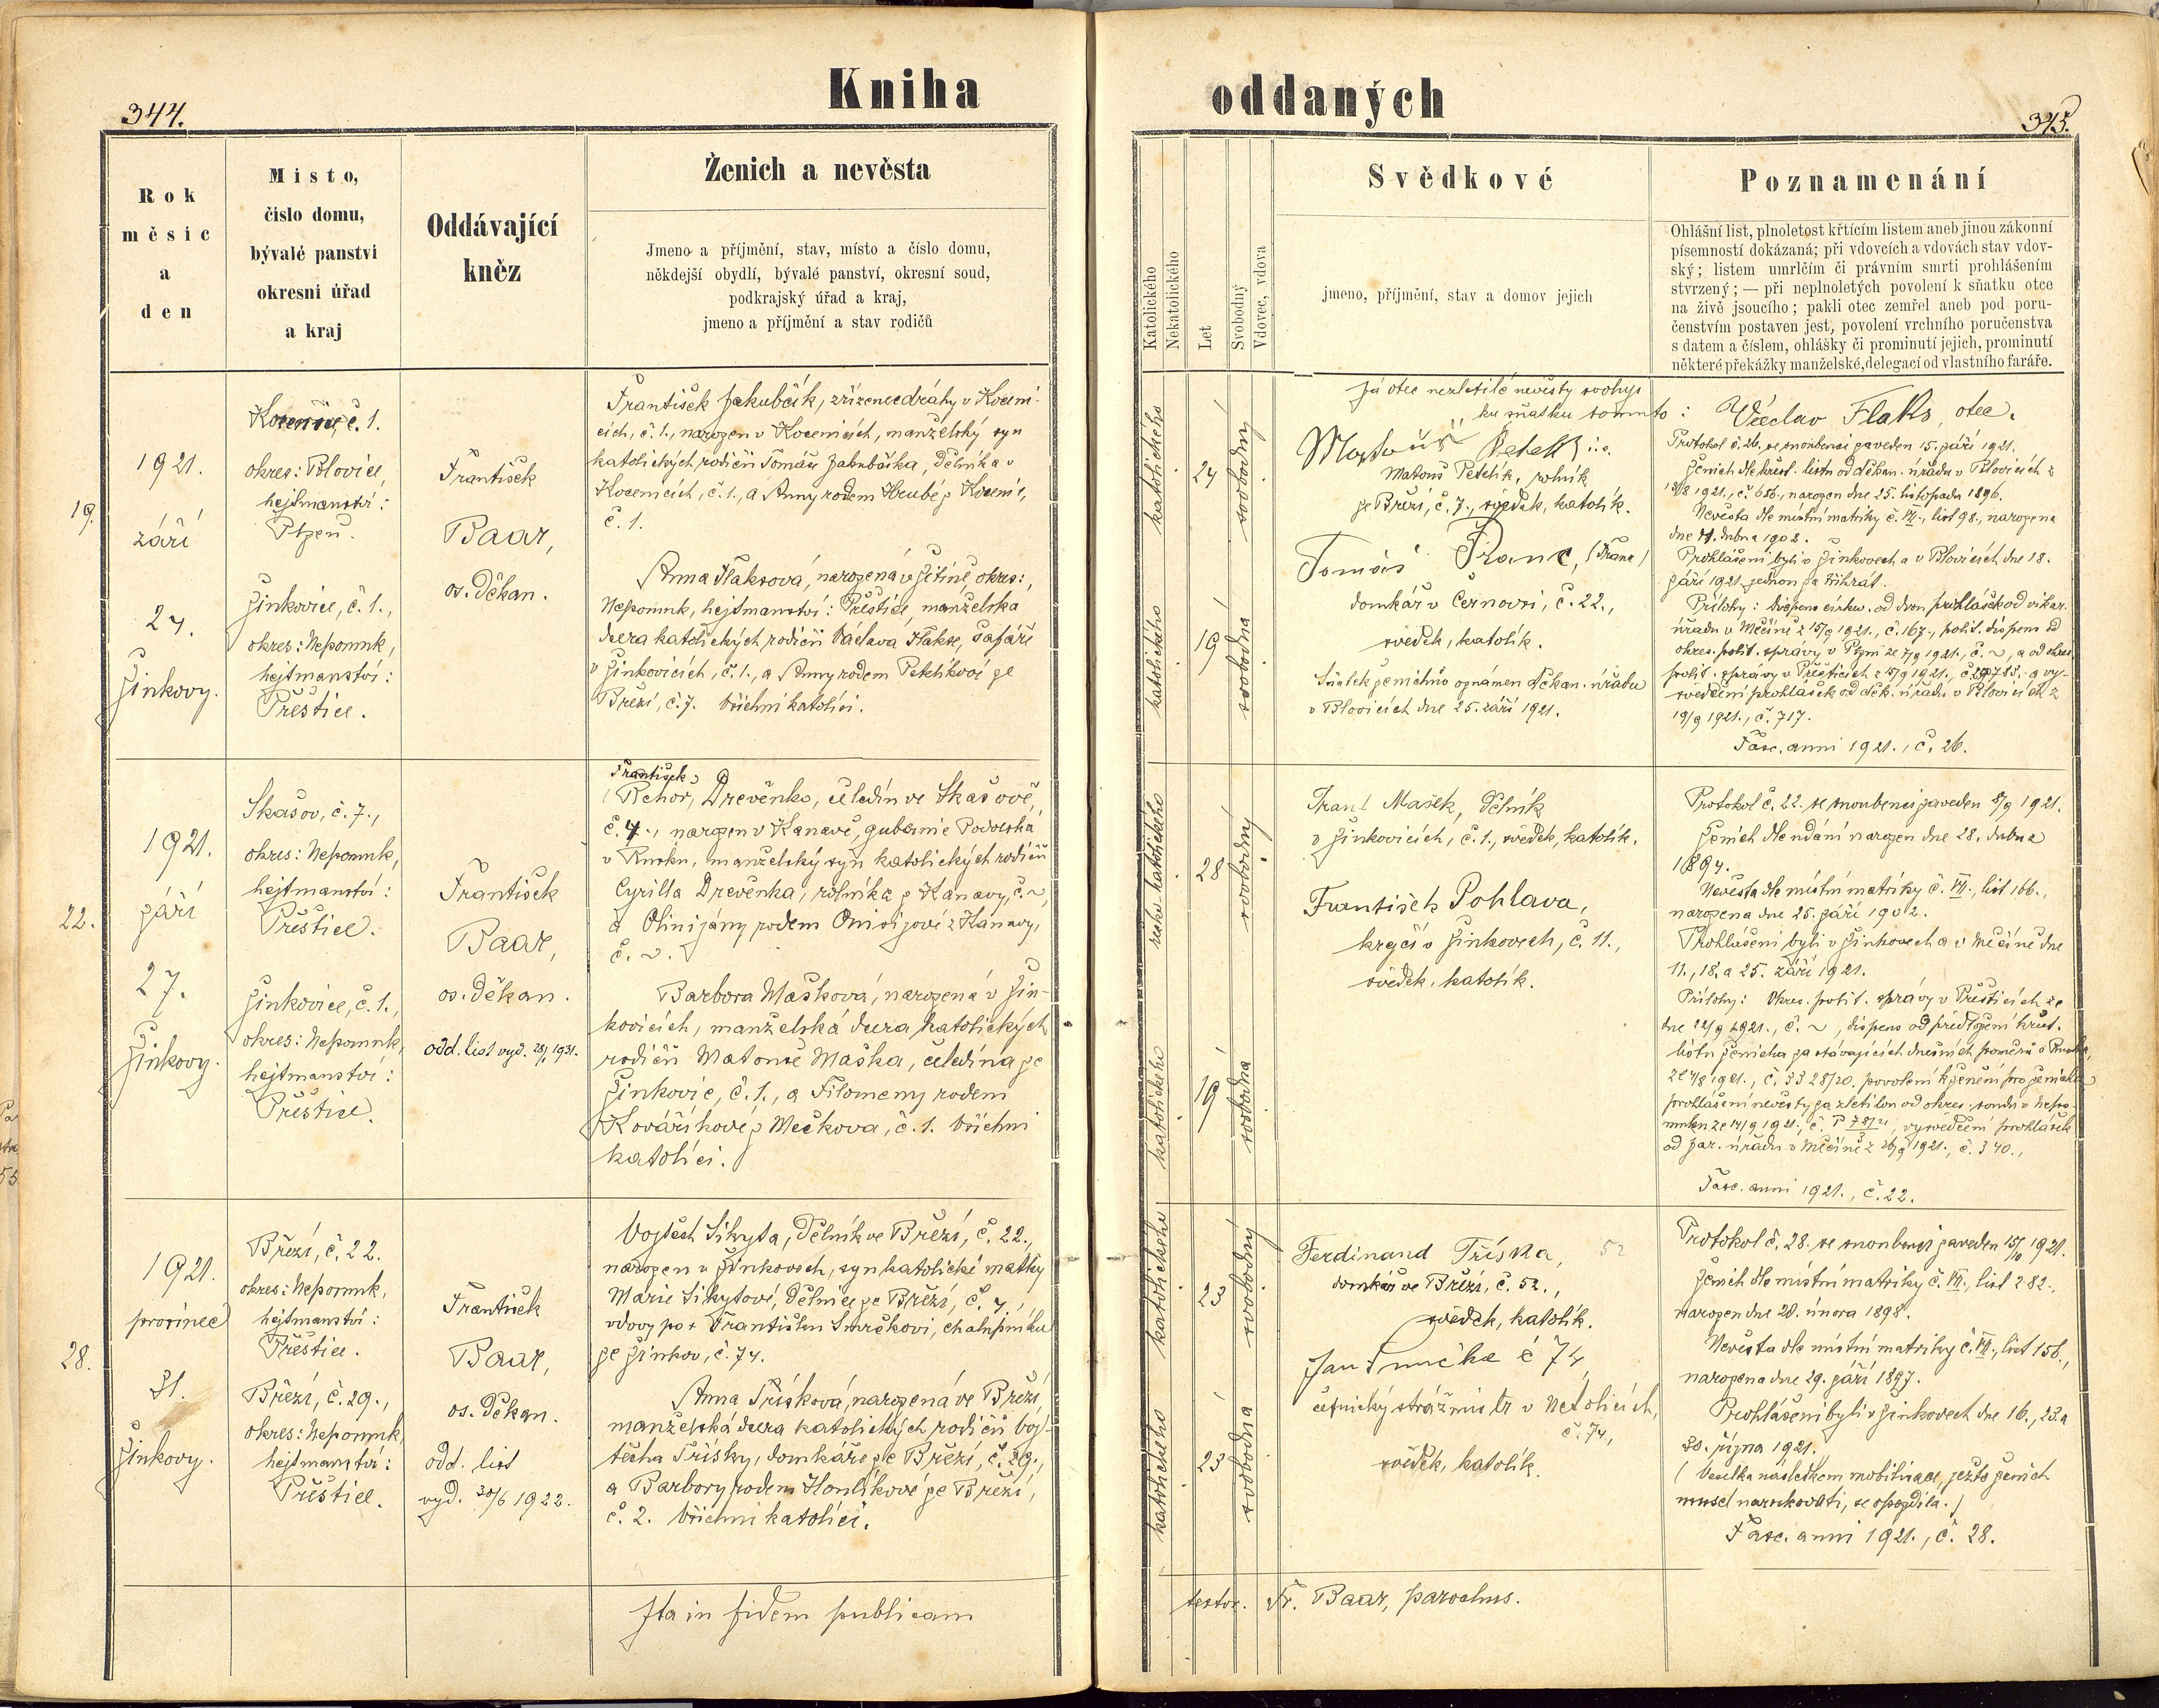 344.
Kniha
Rok
měsíc
a
den
Místo,
číslo domu,
bývalé panství
okresní úřad
a kraj
Oddávající
kněz
Ženich a nevěsta
Jmeno a příjmění, stav, místo a číslo domu,
někdejší obydlí, bývalé panství, okresní soud,
podkrajský úřad a kraj,
jmeno a příjmění a stav rodičů
19.
1921.
září
27.
Žinkovy.
č. 1.
okres: Blovice,
hejtmanství:
Plzeň.
Žinkovice, č. 1.,
okres: Nepomuk,
hejtmanství:
Přeštice.
František
Baar,
os. děkan.
František Jakubčík, zřízenec dráhy v Kocení-
cích, č. 1., narozen v Kocenicích, manželský syn
katolických rodičů Tomáše Jakubčíka, dělníka v
Kocenicích, č. 1., a Anny rodem Hrubé z Kocenic,
č. 1.
Anna Flaksová, narozená v Žitíně, okres:,
Nepomuk, hejtmanství: Přeštice, manželská
dcera katolických rodičů Václava Flakse, šafáře
v Žinkovicích, č. 1., a Anny rodem Petelíkové ze
Březí, č. 7. Všichni katolíci.
22.
1921.
září
27.
Žinkovy.
Skašov, č. 7.,
okres: Nepomuk,
hejtmanství:
Přeštice.
Žinkovice, č. 1.,
okres: Nepomuk,
hejtmanství:
Přeštice.
František
Baar,
os. děkan.
odd. list vyd. 1931.
František
(Řehoř, Drevěnko, čeledín ve Skašově,
č. 7., narozen v Kanavě, gubernie Podolská
v Rusku, manželský syn katolických rodičů
Cyrilla Drevěnka, rolníka z Kanavy, č. ~,
a Olinijány rodem Onisijové z Kanavy,
č. ~.
Barbora Mašková, narozená v Žin-
kovicích, manželská dcera katolických
rodičů Matouše Maška, čeledína ze
Žinkovic, č. 1., a Filomeny rodem
Kováříkové z Mečkova, č. 1. Všichni
katolíci.
28.
1921.
prosinec
31.
Žinkovy.
Březí, č. 22.
okres: Nepomuk,
hejtmanství:
Přeštice.
Březí, č. 29.,
okres: Nepomuk,
hejtmanství:
Přeštice.
František
Baar,
os. děkan.
odd. list
vyd. 30/6 1922.
Vojtěch Sikyta, dělník ve Březí, č. 22.,
narozen v Žinkovech, syn katolické matky
Marie Sikytové, dělnice ze Březí, č. 7.,
vdovy po + Františku Smrčkovi, chalupníku
ze Žinkov, č. 74.
Anna Třísková, narozená ve Březí,
manželská dcera katolických rodičů Voj-
těcha Třísky, domkáře ze Březí, č. 29.,
a Barbory rodem Honlíkové ze Březí,
č. 2. Všichni katolíci.
Ita in fidem publicam
oddaných
345.
Katolického
Nekatolického
Let
Svobodný
Vdovec, vdova
Svědkové
jmeno, příjmění, stav a domov jejich
Poznamenání
Ohlášní list, plnoletost křtícím listem aneb jinou zákonní
písemností dokázaná; při vdovcích a vdovách stav vdov-
ský; listem umrlčím či právním smrti prohlášením
stvrzený; — při neplnoletých povolení k sňatku otce
na živě jsoucího; pakli otec zemřel aneb pod poru-
čenstvím postaven jest, povolení vrchního poručenstva
s datem a číslem, ohlášky či prominutí jejich, prominutí
některé překážky manželské, delegací od vlastního faráře.
katolického
24
svobodný
katolického
19
svobodná
Já otec nezletilé nevěsty svoluji
ku sňatku tomuto: Václav Flaks, otec.
Matouš Petelík i.e.
Matouš Petelík, rolník
ze Březí, č. 7., svědek, katolík.
Tomáš Franc, (Franc)
domkář v Černovsi, č. 22.,
svědek, katolík.
Sňatek ženichův oznámen děkan. úřadu
v Blovicích dne 25. září 1921.
Protokol č. 26. se snoubenci zaveden 15. září 1921.
Ženich dle křest. listu od děkan. úřadu v Blovicích z
1921., č. 656., narozen dne 25. listopadu 1896.
Nevěsta dle místní matriky č. VII., list 98., narozena
dne 11. dubna 1902.
Prohlášeni byli v Žinkovech a v Blovicích dne 18.
září 1921. jednou za třikrát.
Přílohy: dispens církev. od dvou prohlášek od vikar.
úřadu v Měčíně z 15/9 1921., č. 167., polit. dispens od
okres. polit. správy v Plzni ze 7/9 1921., č. ~, a od okres.
polit. správy v Přešticích z 1921., a vy-
svědčení prohlášek od děk. úřadu v Blovicích z
19/9 1921., č. 717.
Fasc. anni 1921., č. 26.
katolického
28
svobodný
katolického
19
svobodná
Frant. Mašek, dělník
v Žinkovicích, č. 1., svědek, katolík.
František Pohlava,
krejčí v Žinkovech, č. 11.,
svědek, katolík.
Protokol č. 22. se snoubenci zaveden 8/9 1921.
Ženich dle udání narozen dne 28. dubna
1894.
Nevěsta dle místní matriky č. VII., list 166.,
narozena dne 25. září 1902.
Prohlášeni byli v Žinkovech a v Měčíně dne
11., 18. a 25. září 1921.
Přílohy: Okres. polit. správy v Přešticích ze
dne 22/9 1921., č. ~, dispens od předložení křest.
listu ženicha za stávajících dnešních poměrů v Rusku,
1921., č. 3328/20. povolení k ženění pro ženicha
prohlášení nevěsty za zletilou od okres. soudu v Nepo-
muku ze 14/9 1921., vysvědčení prohlášek
od far. úřadu v Měčíně z 26/9 1921., č. 340.,
Fasc. anni 1921., č. 22.
katolického
23
svobodný
katolického
23
svobodná
Ferdinand Tříska, 52
domkář ve Březí, č. 52.,
svědek, katolík.
Jan Smrčka č 74
četnický strážmistr v Netolicích,
č. 74.,
svědek, katolík.
Protokol č. 28. se snoubenci zaveden 15/10 1921.
Ženich dle místní matriky č. VI., list 282.,
narozen dne 20. února 1898.
Nevěsta dle místní matriky č. VI., list 156.,
narozena dne 29. září 1897.
Prohlášeni byli v Žinkovech dne 16., 23. a
30. října 1921.
(Veselka následkem mobilisace, ježto ženich
musel narukovati, se opozdila.)
Fasc. anni 1921., č. 28.
testor. Fr. Baar, parochus.